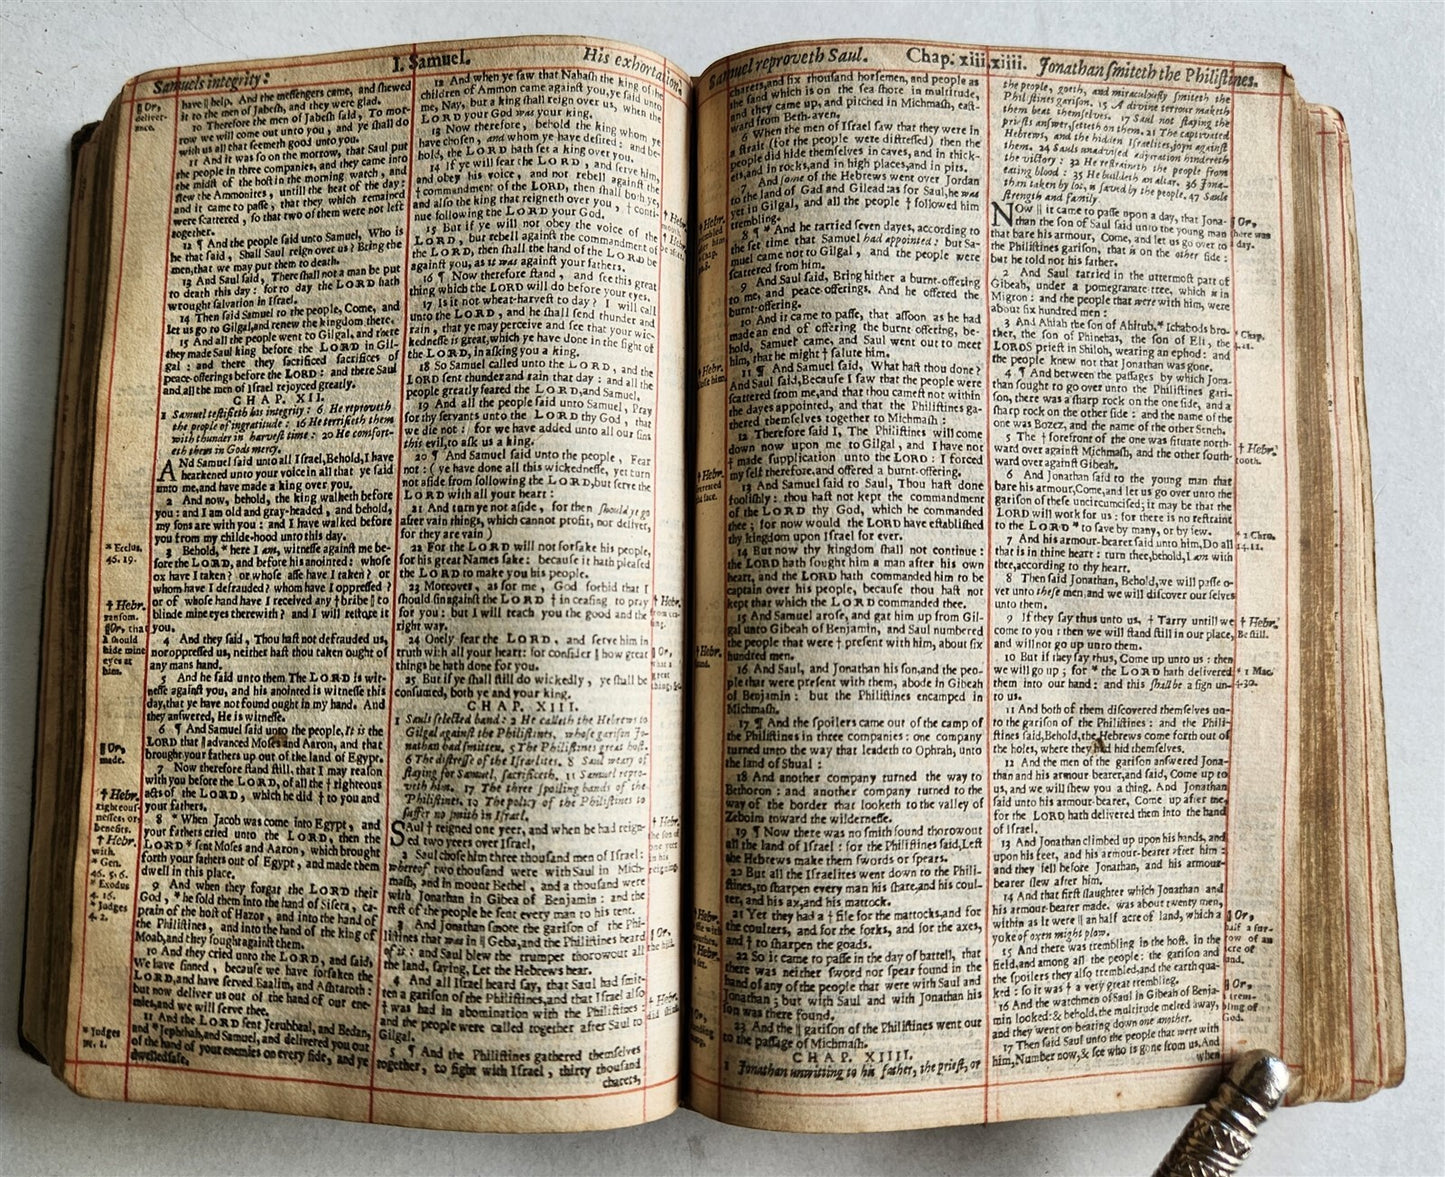 Samuels integrity:
I. Samuel.
His exhortation.
‖ Or,
deliver-
ance.
have ‖ help. And the messengers came, and shewed
it to the men of Jabesh, and they were glad.
10 Therefore the men of Jabesh said, To mor-
row we will come out unto you, and ye shall do
with us all that seemeth good unto you.
11 And it was so on the morrow, that Saul put
the people in three companies, and they came into
the midst of the host in the morning watch, and
slew the Ammonites, untill the heat of the day:
and it came to passe, that they which remained
were scattered, so that two of them were not left
together.
12 ¶ And the people said unto Samuel, Who is
he that said, Shall Saul reign over us? Bring the
men, that we may put them to death.
13 And Saul said, There shall not a man be put
to death this day: for to day the LORD hath
wrought salvation in Israel.
14 Then said Samuel to the people, Come, and
let us go to Gilgal, and renew the kingdom there.
15 And all the people went to Gilgal, and there
they made Saul king before the LORD in Gil-
gal: and there they sacrificed sacrifices of
peace-offerings before the LORD: and there Saul
and all the men of Israel rejoyced greatly.
CHAP. XII.
1 Samuel testifieth his integrity: 6 He reproveth
the people of ingratitude: 16 He terrifieth them
with thunder in harvest time: 20 He comfort-
eth them in Gods mercy.
ANd Samuel said unto all Israel, Behold, I have
hearkened unto your voice in all that ye said
unto me, and have made a king over you.
2 And now, behold, the king walketh before
you: and I am old and gray-headed, and behold,
my sons are with you: and I have walked before
you from my childe-hood unto this day.
3 Behold, * here I am, witnesse against me be-
fore the LORD, and before his anointed: whose
ox have I taken? or whose asse have I taken? or
whom have I defrauded? whom have I oppressed?
or of whose hand have I received any † bribe ‖ to
blinde mine eyes therewith? and I will restore it
you.
4 And they said, Thou hast not defrauded us,
nor oppressed us, neither hast thou taken ought of
any mans hand.
5 And he said unto them, The LORD is wit-
nesse against you, and his anointed is witnesse this
day, that ye have not found ought in my hand. And
they answered, He is witnesse.
6 ¶ And Samuel said unto the people, It is the
LORD that ‖ advanced Moses and Aaron, and that
brought your fathers up out of the land of Egypt.
7 Now therefore stand still, that I may reason
with you before the LORD, of all the † righteous
acts of the LORD, which he did † to you and
your fathers.
8 * When Jacob was come into Egypt, and
your fathers cried unto the LORD, then the
LORD * sent Moses and Aaron, which brought
forth your fathers out of Egypt, and made them
dwell in this place.
9 And when they forgat the LORD their
God, * he sold them into the hand of Sisera, ca-
prain of the host of Hazor, and into the hand of
the Philistins, and into the hand of the king of
Moab, and they fought against them.
10 And they cried unto the LORD, and said,
We have sinned, because we have forsaken the
LORD, and have served Baalim, and Ashtaroth:
but now deliver us out of the hand of our ene-
mies, and we will serve thee.
11 And the LORD sent Jerubbaal, and Bedan,
and * Jephthah, and Samuel, and delivered you out
of the hand of your enemies on every side, and ye
dwelled safe.
* Ecclus.
46. 19.
† Hebr.
ransom.
‖ Or, that
I should
hide mine
eyes at
him.
‖ Or,
made.
† Hebr.
righteous-
nesses, or,
benefits.
† Hebr.
with.
* Gen.
46. 5, 6.
* Exodus
4. 16.
* Judges
4. 2.
* Judges
11. 1.
12 And when ye saw that Nahash the king of the
children of Ammon came against you, ye said unto
me, Nay, but a king shall reign over us, when the
LORD your God was your king.
13 Now therefore, behold the king whom ye
have chosen, and whom ye have desired: and be-
hold, the LORD hath set a king over you.
14 If ye will fear the LORD, and serve him,
and obey his voice, and not rebell against the
† commandment of the LORD, then shall both ye,
and also the king that reigneth over you, † conti-
nue following the LORD your God.
15 But if ye will not obey the voice of the
LORD, but rebell against the commandment of
the LORD, then shall the hand of the LORD be
against you, as it was against your fathers.
16 ¶ Now therefore stand, and see this great
thing which the LORD will do before your eyes.
17 Is it not wheat-harvest to day? I will call
unto the LORD, and he shall send thunder and
rain, that ye may perceive and see that your wic-
kednesse is great, which ye have done in the sight of
the LORD, in asking you a king.
18 So Samuel called unto the LORD, and the
LORD sent thunder and rain that day: and all the
people greatly feared the LORD, and Samuel.
19 And all the people said unto Samuel, Pray
for thy servants unto the LORD thy God, that
we die not: for we have added unto all our sins
this evil, to ask us a king.
20 ¶ And Samuel said unto the people, Fear
not: (ye have done all this wickednesse, yet turn
not aside from following the LORD, but serve the
LORD with all your heart:
21 And turn ye not aside, for then should ye go
after vain things, which cannot profit, nor deliver,
for they are vain)
22 For the LORD will not forsake his people,
for his great Names sake: because it hath pleased
the LORD to make you his people.
23 Moreover, as for me, God forbid that I
should sin against the LORD † in ceasing to pray
for you: but I will teach you the good and the
right way.
24 Onely fear the LORD, and serve him in
truth with all your heart: for consider ‖ how great
things he hath done for you.
25 But if ye shall still do wickedly, ye shall be
consumed, both ye and your king.
CHAP. XIII.
1 Sauls selected band: 2 He calleth the Hebrews to
Gilgal against the Philistins, whose garison Jo-
nathan had smitten. 5 The Philistins great host.
6 The distresse of the Israelites. 8 Saul weary of
staying for Samuel, sacrificeth. 11 Samuel repro-
veth him. 17 The three spoiling bands of the
Philistins. 19 The policy of the Philistins to
suffer no smith in Israel.
SAul † reigned one yeer, and when he had reign-
ed two yeers over Israel,
2 Saul chose him three thousand men of Israel:
whereof two thousand were with Saul in Mich-
mash, and in mount Bethel, and a thousand were
with Jonathan in Gibea of Benjamin: and the
rest of the people he sent every man to his tent.
3 And Jonathan smote the garison of the Phi-
listins that was in ‖ Geba, and the Philistins heard
of it: and Saul blew the trumpet thorowout all
the land, saying, Let the Hebrews hear.
4 And all Israel heard say, that Saul had smit-
ten a garison of the Philistins, and that Israel also
† was had in abomination with the Philistins:
and the people were called together after Saul to
Gilgal.
5 ¶ And the Philistins gathered themselves
together, to fight with Israel, thirty thousand
charets,
† Hebr.
† Hebr.
† Hebr.
‖ Or,
† Hebr.
‖ Or,
the hill.
† Hebr.
did stink.
Samuel reproveth Saul.
Chap. xiii. xiiii.
Jonathan smiteth the Philistines.
charets, and six thousand horsemen, and people as
the sand which is on the sea shore in multitude,
and they came up, and pitched in Michmash, east-
ward from Beth-aven.
6 When the men of Israel saw that they were in
a strait (for the people were distressed) then the
people did hide themselves in caves, and in thick-
ets, and in rocks, and in high places, and in pits.
7 And some of the Hebrews went over Jordan
to the land of Gad and Gilead: as for Saul, he was
yet in Gilgal, and all the people † followed him
trembling.
8 ¶ * And he tarried seven dayes, according to
the set time that Samuel had appointed: but Sa-
muel came not to Gilgal, and the people were
scattered from him.
9 And Saul said, Bring hither a burnt-offering
to me, and peace-offerings. And he offered the
burnt-offering.
10 And it came to passe, that assoon as he had
made an end of offering the burnt offering, be-
hold, Samuel came, and Saul went out to meet
him, that he might † salute him.
11 ¶ And Samuel said, What hast thou done?
And Saul said, Because I saw that the people were
scattered from me, and that thou camest not within
the dayes appointed, and that the Philistins ga-
thered themselves together to Michmash:
12 Therefore said I, The Philistins will come
down now upon me to Gilgal, and I have not
† made supplication unto the LORD: I forced
my self therefore, and offered a burnt-offering.
13 And Samuel said to Saul, Thou hast done
foolishly: thou hast not kept the commandment
of the LORD thy God, which he commanded
thee; for now would the LORD have established
thy kingdom upon Israel for ever.
14 But now thy kingdom shall not continue:
the LORD hath sought him a man after his own
heart, and the LORD hath commanded him to be
captain over his people, because thou hast not
kept that which the LORD commanded thee.
15 And Samuel arose, and gat him up from Gil-
gal unto Gibeah of Benjamin, and Saul numbered
the people that were † present with him, about six
hundred men.
16 And Saul, and Jonathan his son, and the peo-
ple that were present with them, abode in Gibeah
of Benjamin: but the Philistins encamped in
Michmash.
17 ¶ And the spoilers came out of the camp of
the Philistins in three companies: one company
turned unto the way that leadeth to Ophrah, unto
the land of Shual:
18 And another company turned the way to
Bethoron: and another company turned to the
way of the border that looketh to the valley of
Zeboim toward the wildernesse.
19 ¶ Now there was no smith found thorowout
all the land of Israel: for the Philistins said, Lest
the Hebrews make them swords or spears.
20 But all the Israelites went down to the Phili-
stins, to sharpen every man his share, and his coul-
ter, and his ax, and his mattock.
21 Yet they had a † file for the mattocks, and for
the coulters, and for the forks, and for the axes,
and † to sharpen the goads.
22 So it came to passe in the day of battell, that
there was neither sword nor spear found in the
hand of any of the people that were with Saul and
Jonathan; but with Saul and with Jonathan his
son was there found.
23 And the ‖ garison of the Philistins went out
to the passage of Michmash.
CHAP. XIIII.
1 Jonathan unwitting to his father, the priest, or
† Hebr.
† Hebr.
† Hebr.
† Hebr.
the people, goeth, and miraculously smiteth the
Philistins garison. 15 A divine terrour maketh
them beat themselves. 17 Saul not staying the
priests answer, setteth on them. 21 The captivated
Hebrews, and the hidden Israelites, joyn against
them. 24 Sauls unadvised adjuration hindereth
the victory: 32 He restraineth the people from
eating blood: 35 He buildeth an altar. 36 Jona-
than taken by lot, is saved by the people. 47 Sauls
strength and family.
NOw ‖ it came to passe upon a day, that Jona-
than the son of Saul said unto the young man
that bare his armour, Come, and let us go over to
the Philistins garison, that is on the other side:
but he told not his father.
2 And Saul tarried in the uttermost part of
Gibeah, under a pomegranate-tree, which is in
Migron: and the people that were with him, were
about six hundred men:
3 And Ahiah the son of Ahitub, * Ichabods bro-
ther, the son of Phinehas, the son of Eli, the
LORDS priest in Shiloh, wearing an ephod: and
the people knew not that Jonathan was gone.
4 ¶ And between the passages by which Jona-
than sought to go over unto the Philistins gari-
son, there was a sharp rock on the one side, and a
sharp rock on the other side: and the name of the
one was Bozez, and the name of the other Seneh.
5 The † forefront of the one was situate north-
ward over against Michmash, and the other south-
ward over against Gibeah.
6 And Jonathan said to the young man that
bare his armour, Come, and let us go over unto the
garison of these uncircumcised; it may be that the
LORD will work for us: for there is no restraint
to the LORD * to save by many, or by few.
7 And his armour-bearer said unto him, Do all
that is in thine heart: turn thee, behold, I am with
thee, according to thy heart.
8 Then said Jonathan, Behold, we will passe o-
ver unto these men, and we will discover our selves
unto them.
9 If they say thus unto us, † Tarry until we
come to you: then we will stand still in our place,
and will not go up unto them.
10 But if they say thus, Come up unto us: then
we will go up; for * the LORD hath delivered
them into our hand: and this shall be a sign un-
to us.
11 And both of them discovered themselves un-
to the garison of the Philistins: and the Phili-
stins said, Behold, the Hebrews come forth out of
the holes, where they had hid themselves.
12 And the men of the garison answered Jona-
than and his armour bearer, and said, Come up to
us, and we will shew you a thing. And Jonathan
said unto his armour-bearer, Come up after me,
for the LORD hath delivered them into the hand
of Israel.
13 And Jonathan climbed up upon his hands, and
upon his feet, and his armour-bearer after him:
and they fell before Jonathan, and his armour-
bearer slew after him.
14 And that first slaughter which Jonathan and
his armour-bearer made, was about twenty men,
within as it were ‖ an half acre of land, which a
yoke of oxen might plow.
15 And there was trembling in the host, in the
field, and among all the people: the garison and
the spoilers they also trembled, and the earth qua-
ked: so it was † a very great trembling.
16 And the watchmen of Saul in Gibeah of Benja-
min looked: & behold, the multitude melted away,
and they went on beating down one another.
17 Then said Saul unto the people that were with
him, Number now, & see who is gone from us. And
when
‖ Or,
there was
a day.
* Chap.
4. 21.
† Hebr.
tooth.
* 2 Chro.
14. 11.
† Hebr.
Be still.
* 1 Mac.
4. 30.
‖ Or,
half a fur-
row of an
acre of
land.
‖ Or,
a trem-
bling of
God.